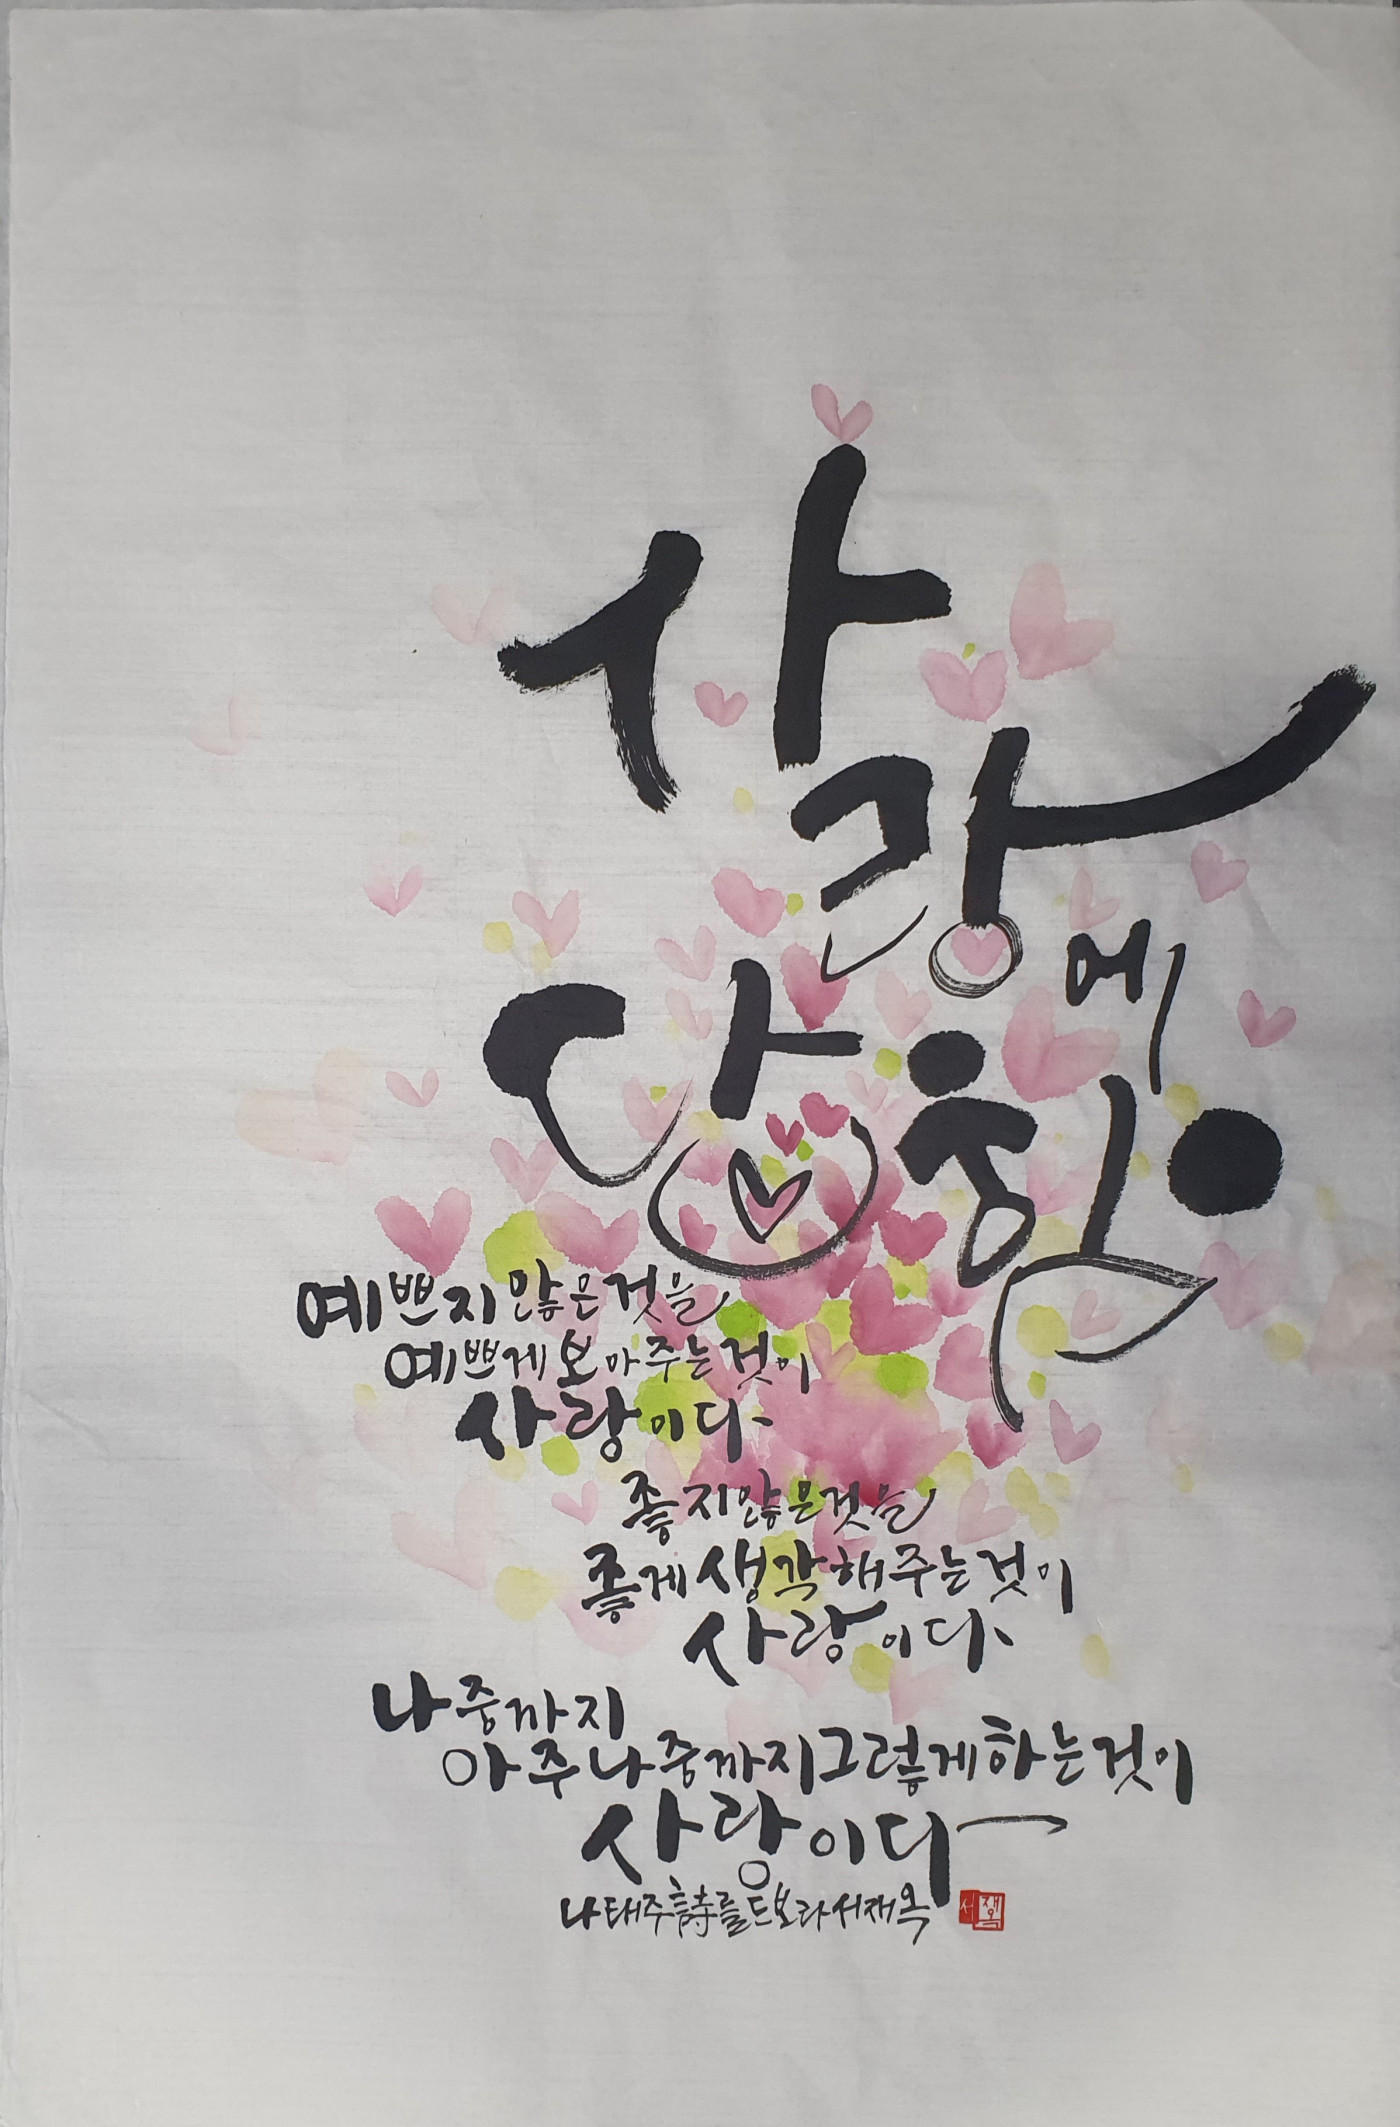 사랑에
답하다
예쁘지 않은 것을
예쁘게 보아주는 것이
사랑이다
좋지 않은 것을
좋게 생각해주는 것이
사랑이다
나중까지
아주 나중까지 그렇게 하는 것이
사랑이다
나태주 詩를 드보라 서재옥
서 재옥